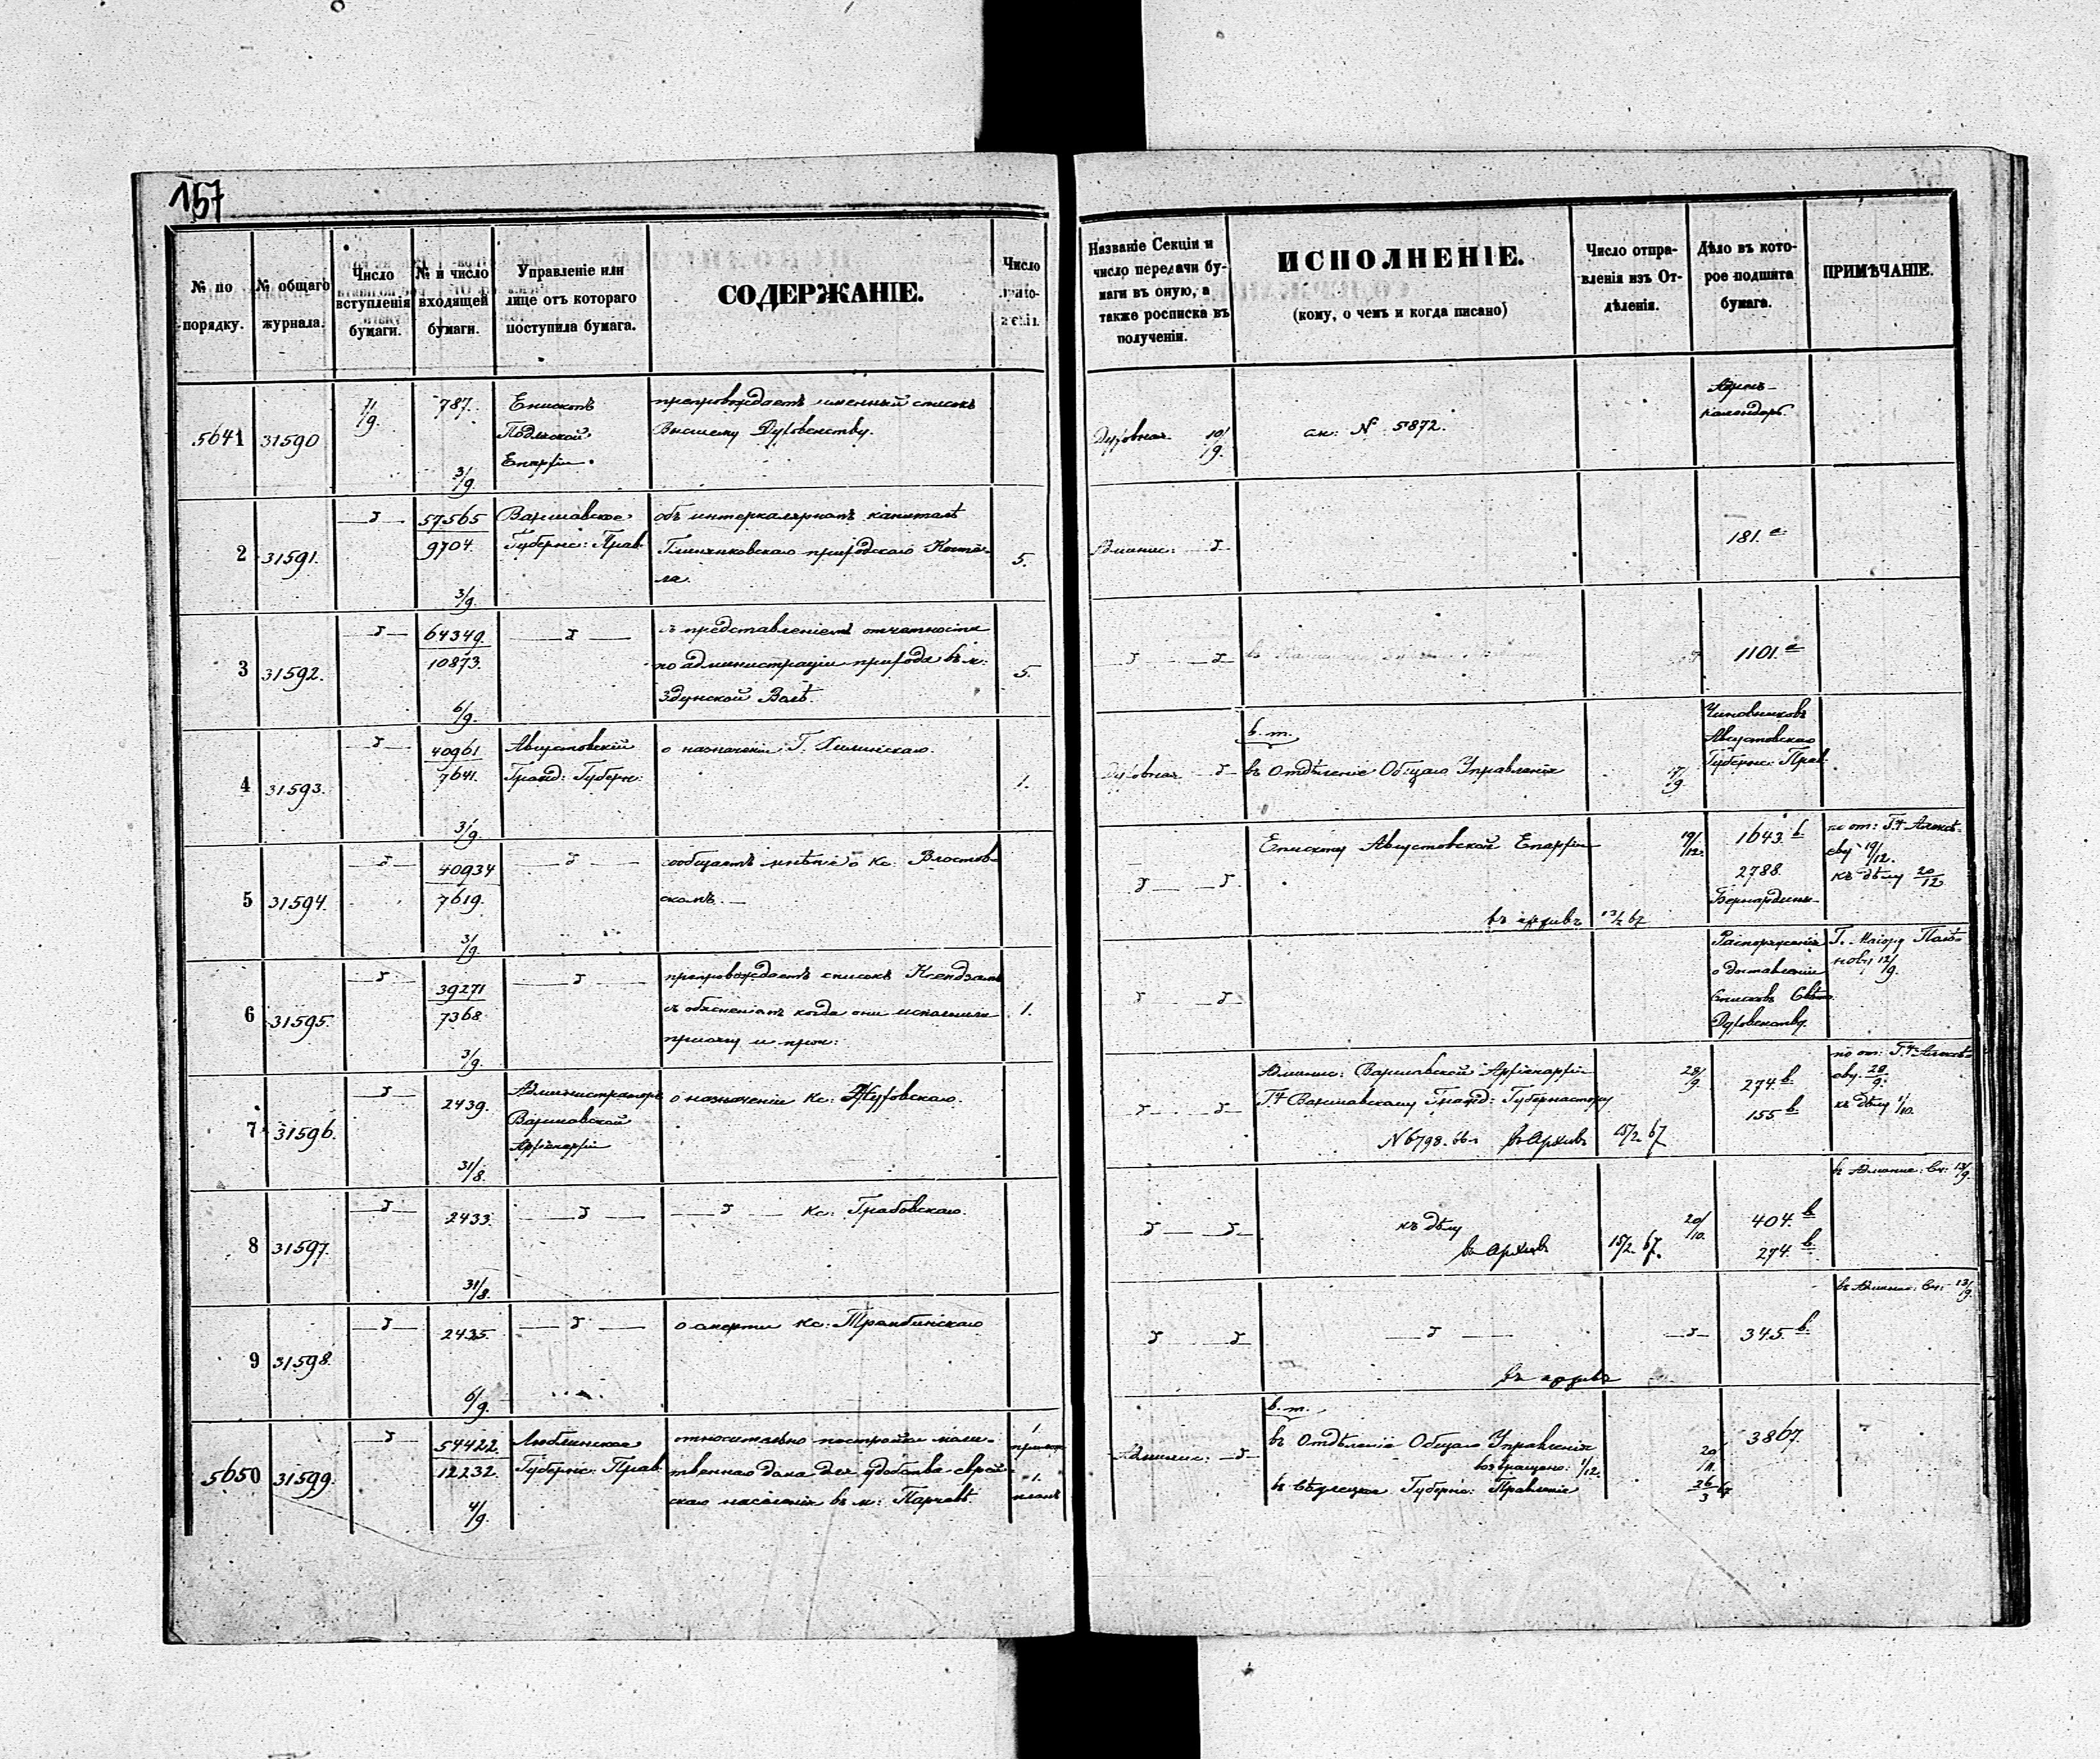 157
№ по порядку.
№ общаго журнала.
Число вступленія бумаги.
№ и число входящей бумаги.
Управленіе или лице отъ котораго поступила бумага.
СОДЕРЖАНІЕ.
Число
Названіе Секціи и число передачи бумаги въ оную, а также росписка въ полученіи.
ИСПОЛНЕНІЕ.
(кому, о чемъ и когда писано)
Число отправленія изъ Отдѣленія.
Дѣло въ которое подшита бумага.
ПРИМѢЧАНІЕ.
5641 31590 7/9. 787. 3/9.
Епископъ
Подляской
Епархіи.
препровождаетъ именный списокъ
Высшему Духовенству.
Духовная 10/9.
ак: № 5872.
2 31591. 57565 9704. 3/9.
Варшавское
Губернс: Прав.
объ интеркалярномъ капиталѣ
приходскаго Костё-
ла.
5.
Админис:
181. а
3 31592. 64349. 10873. 6/9.
съ представленіемъ отчетности
по администраціи прихода въ м:
Здунской Волѣ.
5.
1101. а
4 31593. 40961 7641. 3/9.
Августовскій
Гражд: Губерн:
о назначеніи Г.
1.
Духовная
в. т.
въ Отдѣленіе Общаго Управленія
17/9.
Чиновниковъ
Августовскаго
Губернс: Прав.
5 31594. 40934 7619. 3/9.
сообщаетъ мнѣніе о Кс. Властов-
скомъ.
Епископу Августовской Епархіи
19/12.
въ архивъ 13/2 67
1643. b
2788.
Бернардины
къ дѣлу 20/12
6 31595. 39271 7368. 3/9.
препровождаетъ списокъ Ксендзамъ
съ обясненіемъ когда они исполнили
присягу и проч:
1.
Распоряженія
о доставленіи
Списковъ
Духовенству.
Г. Маіору
12/9.
7 31596. 2439. 31/8.
Администраторъ
Варшавской
Архіепархіи
о назначеніи Кс. Жуховскаго.
Админис: Варшавской Архіепархіи
28/9.
Варшавскому Гражд: Губернатору
№ 6798. въ Архивъ 15/2 67
274. b
155 b
къ дѣлу 1/10.
8 31597. 2433. 31/8.
Кс: Грабовскаго.
къ дѣлу 20/10.
въ Архивъ 15/2 67.
404. b
274. b
13/9.
9 31598. 2435. 6/9.
о смерти Кс: Трембинскаго
въ архивъ
345. b.
13/9.
5650 31599. 54422. 12232. 4/9.
Люблинское
Губернс. Прав.
относительно постройки моли-
твеннаго дома для удобства еврей-
скаго населенія въ м: Парчевѣ.
1.
1.
планъ
Админис:
в. т.
въ Отдѣленіе Общаго Управленія
возвращено: 1/12.
въ Сѣдлецкое Губернс: Правленіе
20/11.
26/3 67
3867.